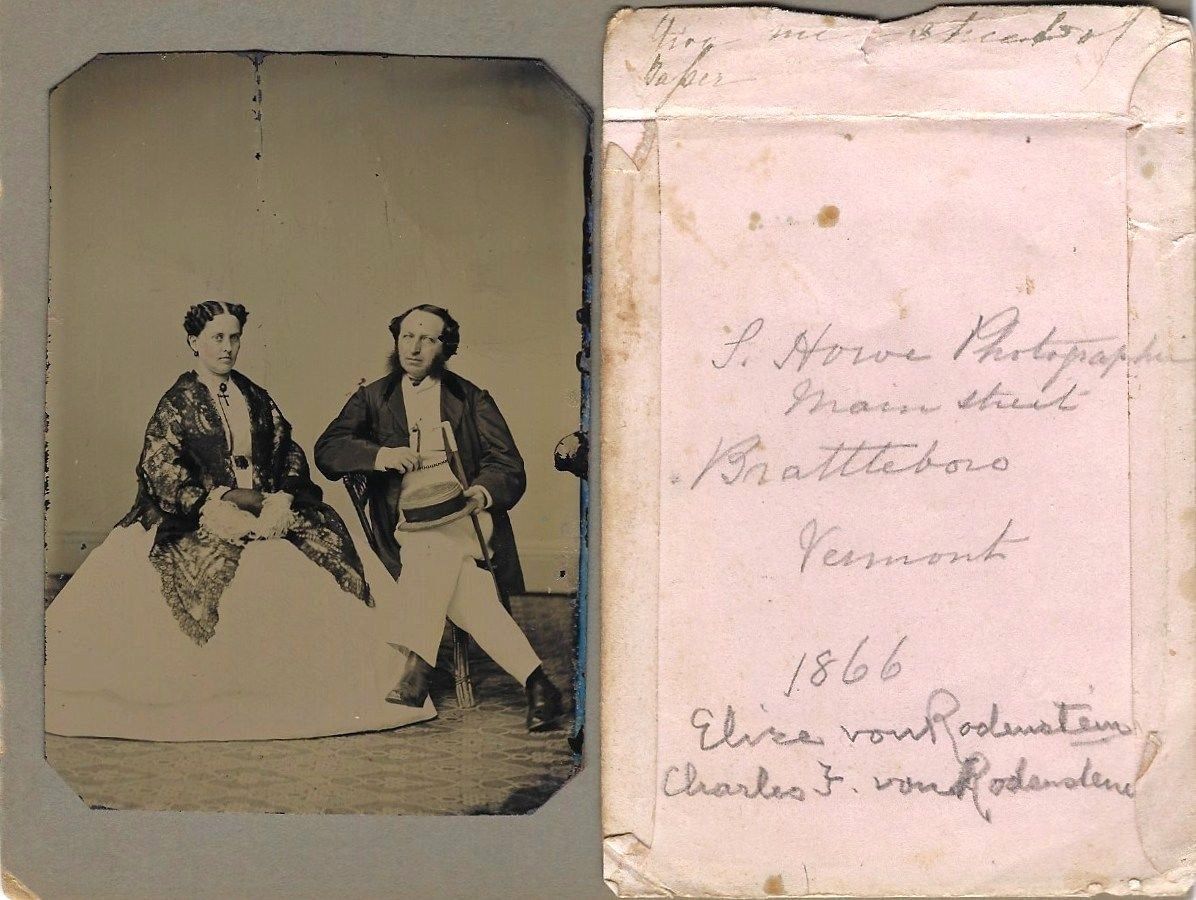 me a sheet of
Paper
S. Howe Photographi
Main street
Brattleboro
Vermont
1866
Elise von Rodenstein
Charles F. von Rodenstein